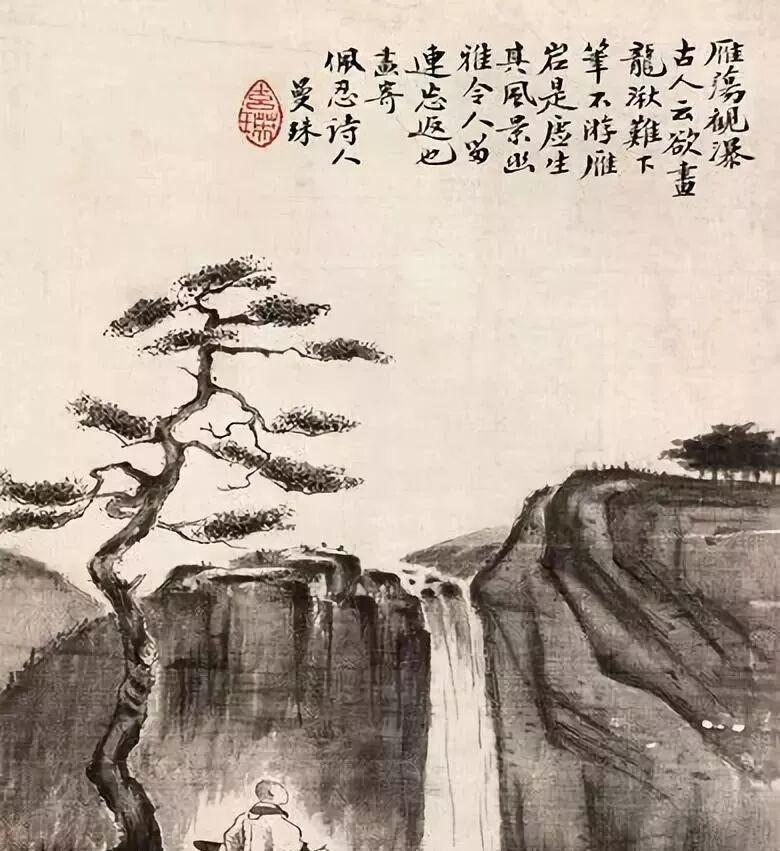 雁蕩觀瀑
古人云欲畫
龍湫難下
筆不游雁
岩是虛生
其風景幽
雅令人留
連忘返也
畫寄
佩忍詩人
曼珠